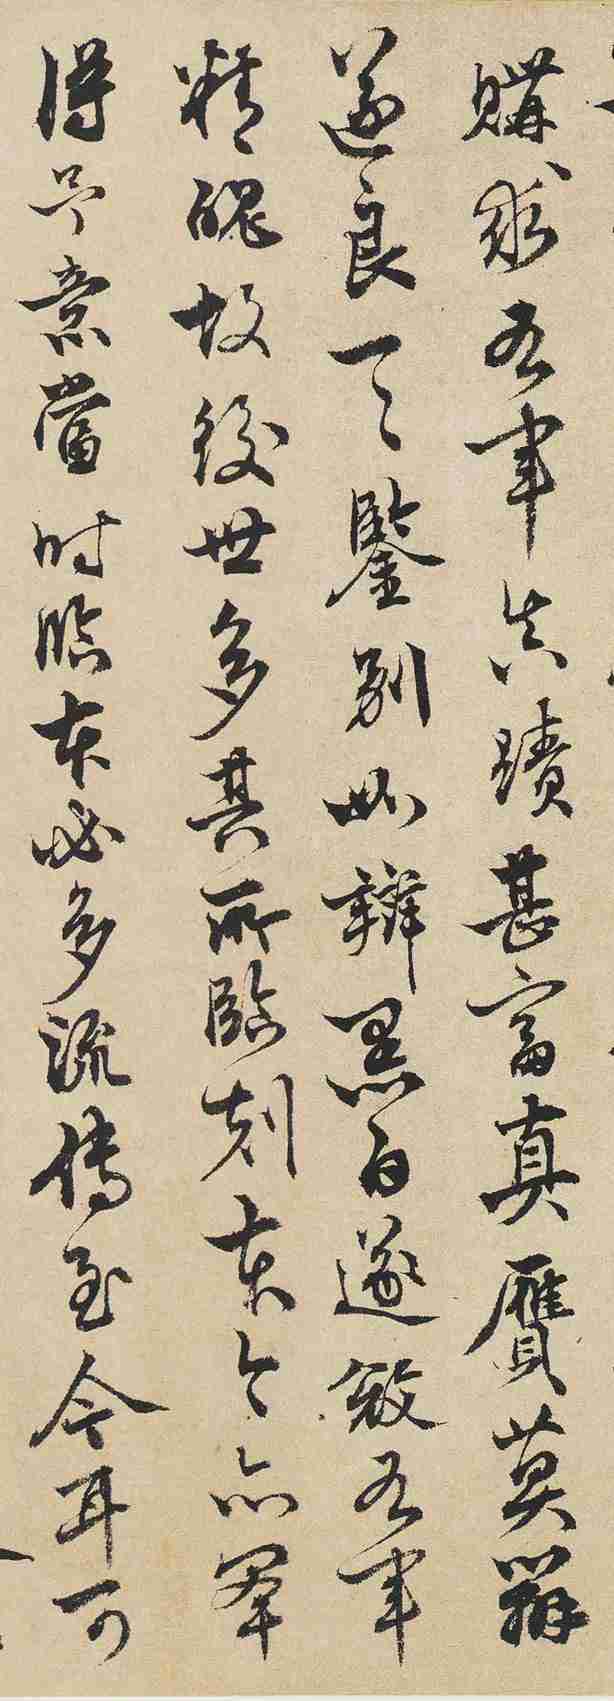 購求右軍真蹟甚富真贋莫辨
遂良一々鑒別如辨黑白遂敓右軍
精魄故後世多其所臨刻本今亦罕
得予意當時臨本必多流傳至今耳可